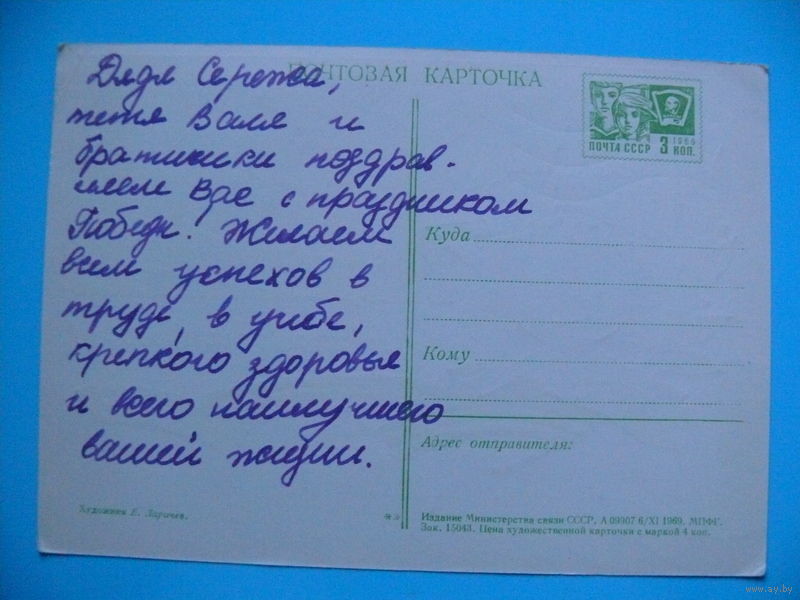 ПОЧТОВАЯ КАРТОЧКА
Дядя Сережа,
тетя Валя и
братишки поздрав-
ляем Вас с праздником
Победы! Желаем
всем успехов в
труде, в учебе,
крепкого здоровья
и всего наилучшего
вашей жизни.
ПОЧТА СССР 1966 3 КОП.
Куда
Кому
Адрес отправителя:
Художник Е. Ларичев.
Издание Министерства связи СССР. А 09907 6/XI 1969. МПФГ.
Зак. 15043. Цена художественной карточки с маркой 4 коп.
www.ay.by